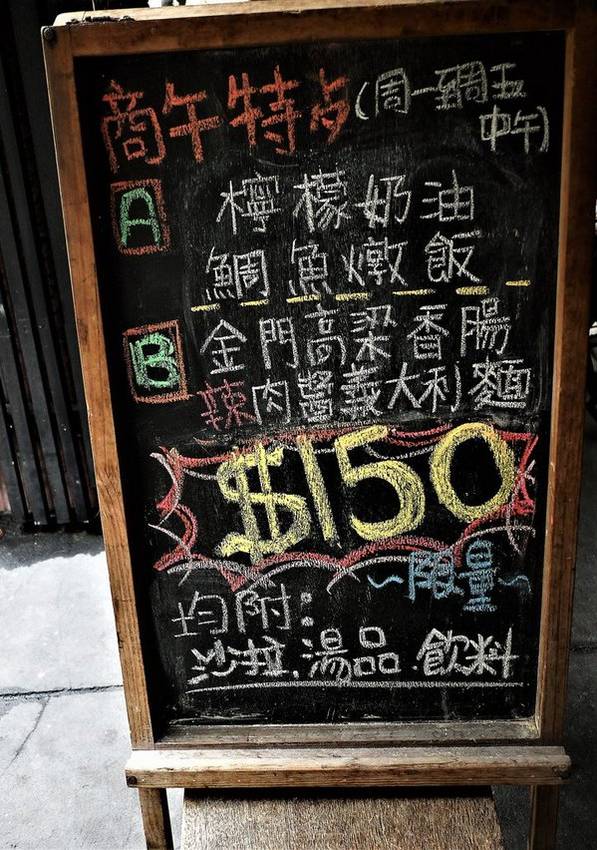 商午特点(周一到周五
中午)
A 檸檬奶油
鯛魚燉飯
B 金門高粱香腸
辣肉醬義大利麵
$150
~限量~
均附:
沙拉.湯品.飲料